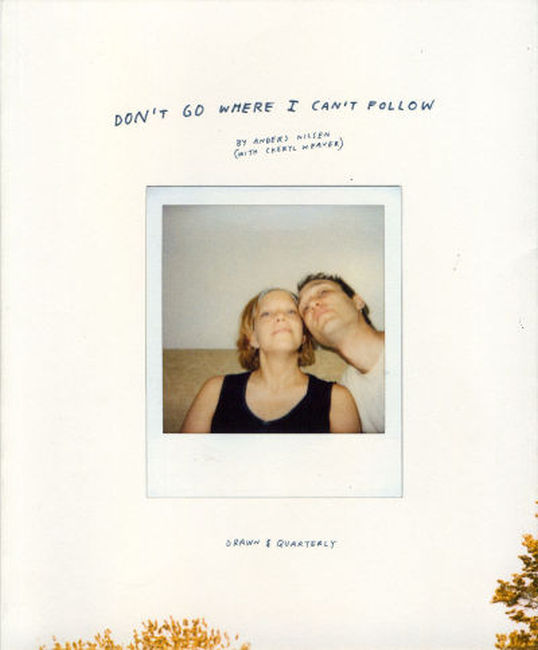 DON'T GO WHERE I CAN'T FOLLOW
BY ANDERS NILSEN
(WITH CHERYL WEAVER)
DRAWN & QUARTERLY